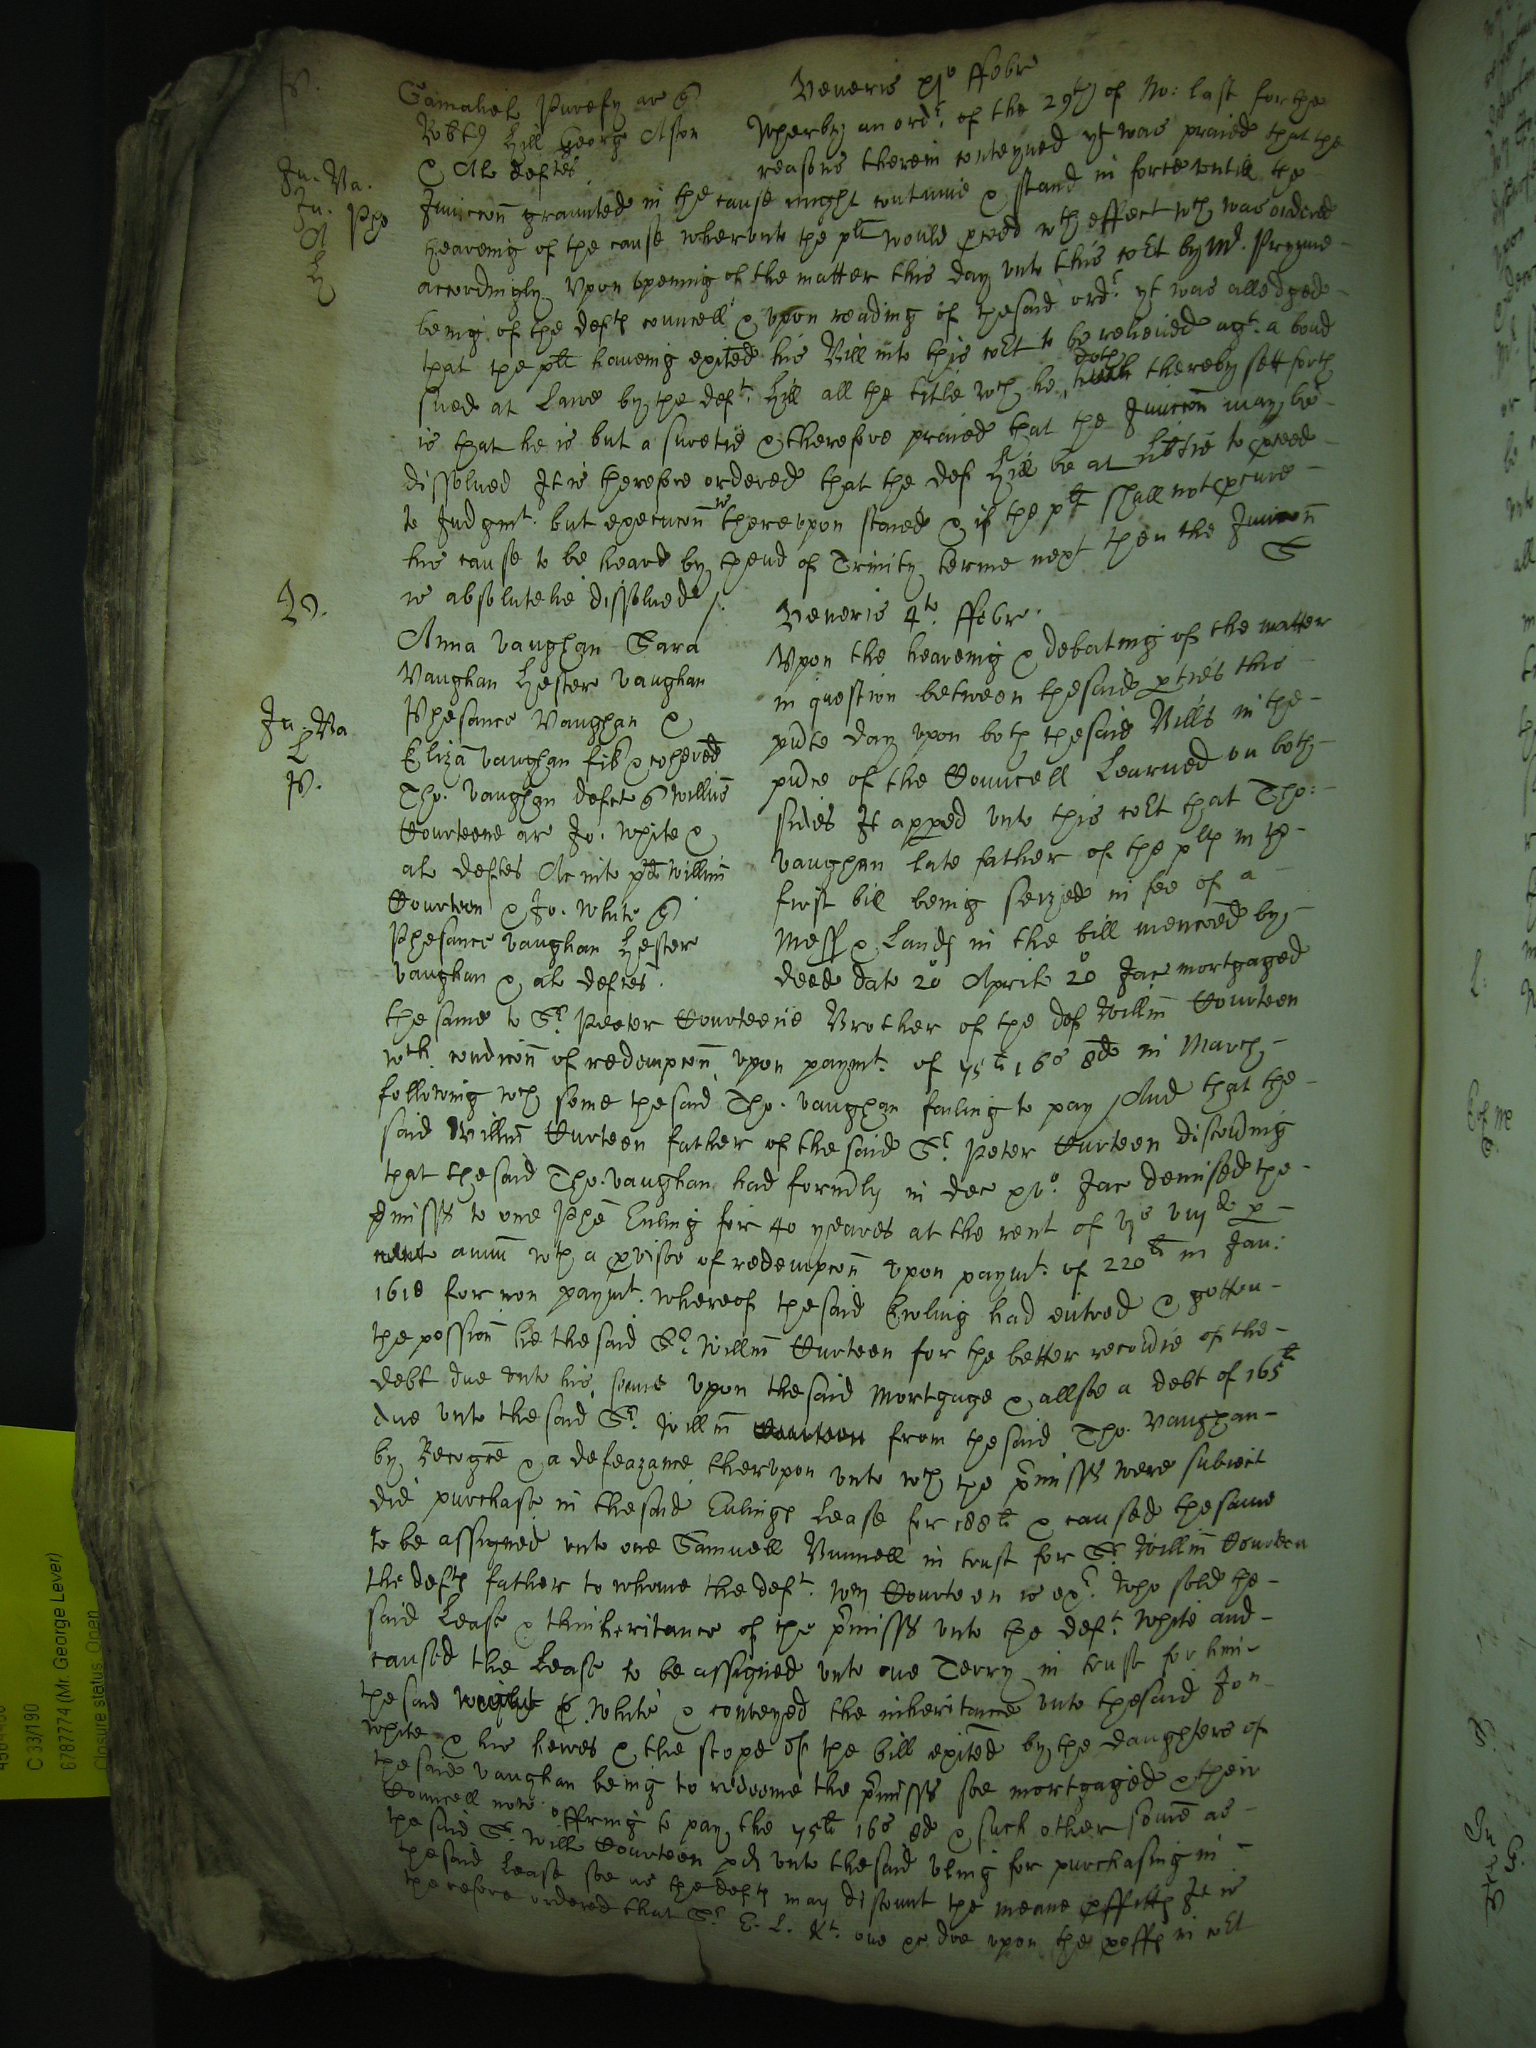 P.
Veneris xjo ffebr
Gamaliel Purefy ar q
Robtus Hill George Aston
& Al deftes
Wherby an ordr. of the 29th of No: last for the
reasons therein conteyned yt was praied that the
Ju. Va.
Ju.
A
Hy
Iniuccon graunted in the cause might contynue & stand in force untill the
hearenig of the cause wherunto the plt would pceed wth effect wch was ordered
accordingly Upon openinge of the matter this day unto this cort by Mr. Prynne
being of the defts councell & upon reading of thesaid ordr. yt was alledged
that the plt haveing exited his Bill into this cort to be relieved agt. a bond
sued at Lawe by the deft. Hill all the title wch he doth thereby sett forth
is that he is but a suretie & therefore praied that the Iniuccon may be
dissolved It is therefore ordered that the def Hill be at libtie to pceed
to Judgmt. but execucon is thereupon staied & if the plt shall not pcure
his cause to be heard by thend of Trinity terme next then the Iniuccon
is absolutelie dissolved /.
Veneris 4to. ffebr.
Anna Vaughan Sara
Vaughan Hester Vaughan
Phesance Vaughan &
Eliza Vaughan fil & cohered
Tho. Vaughan defct q Willm
Courteene ar Jo. White &
al deftes Ac inte pd Willm
Courteen & Jo. White q
Phesance Vaughan Hester
Vaughan & al deftes.
Ju. Va
L
P.
Upon the heareinig & debateing of the matter
in question betweene thesaid pties this
pnte day upon both thesaid Bills in the
pnce of the Councell Learned on both
sides It appered unto this cort that Tho:
Vaughan late father of the plts in the
first bill being seized in fee of a
Mess & Lands in the bill menconed by
deed date 20 Aprilr 20 Jac mortgaged
the same to Sr. Peeter Courteene Brother of the def Willm Courteen
wth condicon of redempcon upon paymt. of 75li 16s 8d in March
following wch some thesaid Tho. Vaughan failing to pay And that the
said Willm Curteen father of the said Sr. Peter Curteen discovering
that thesaid Tho. Vaughan had formerly in Dec xvo. Jac demised the
pmisses to one Euling for 40 yeares at the rent of vjs viijd p
annu wth a pviso of redempcon upon paymt. of 220li in Jan:
1618 for non paymt. whereof thesaid Ewling had entred & gotten
the possion he thesaid Sr. Willm Curteen for the better recoverie of the
debt due unto his sonne upon thesaid Mortgage & allsoe a debt of 165li
due unto thesaid Sr. Willm Courteen from thesaid Tho. Vaughan
by Recogce & a defeazance therupon unto wch the pmisses were subiect
did purchase in thesaid Eulings Lease for 188li & caused thesame
to be assigned unto one Samuell Bunnell in trust for Sr. Willm Courteen
the defts father to whome the deft. Wm Courteen is exr. Who sold the
said Lease & thinheritance of the pmisses unto the deft. White and
caused the Lease to be assigned unto one Terry in trust for him
thesaid White & conveyed the inheritance unto thesaid Jon
White & his heires & the scope of the bill exited by the daughters of
thesaid Vaughan being to redeeme the pmisses soe mortgaged & their
Councell now offring to pay the 75li 16s 8d & such other some as
thesaid Sr. Willm Courteen pd unto thesaid Uling for purchasing in
thesaid Lease soe as the defts may discount the meane pffitts It is
therefore ordered that Sr. E. L. Kt. one &c doe upon the poffs in cort
C 33/190
6787774 (Mr. George Lever)
Closure status: Open